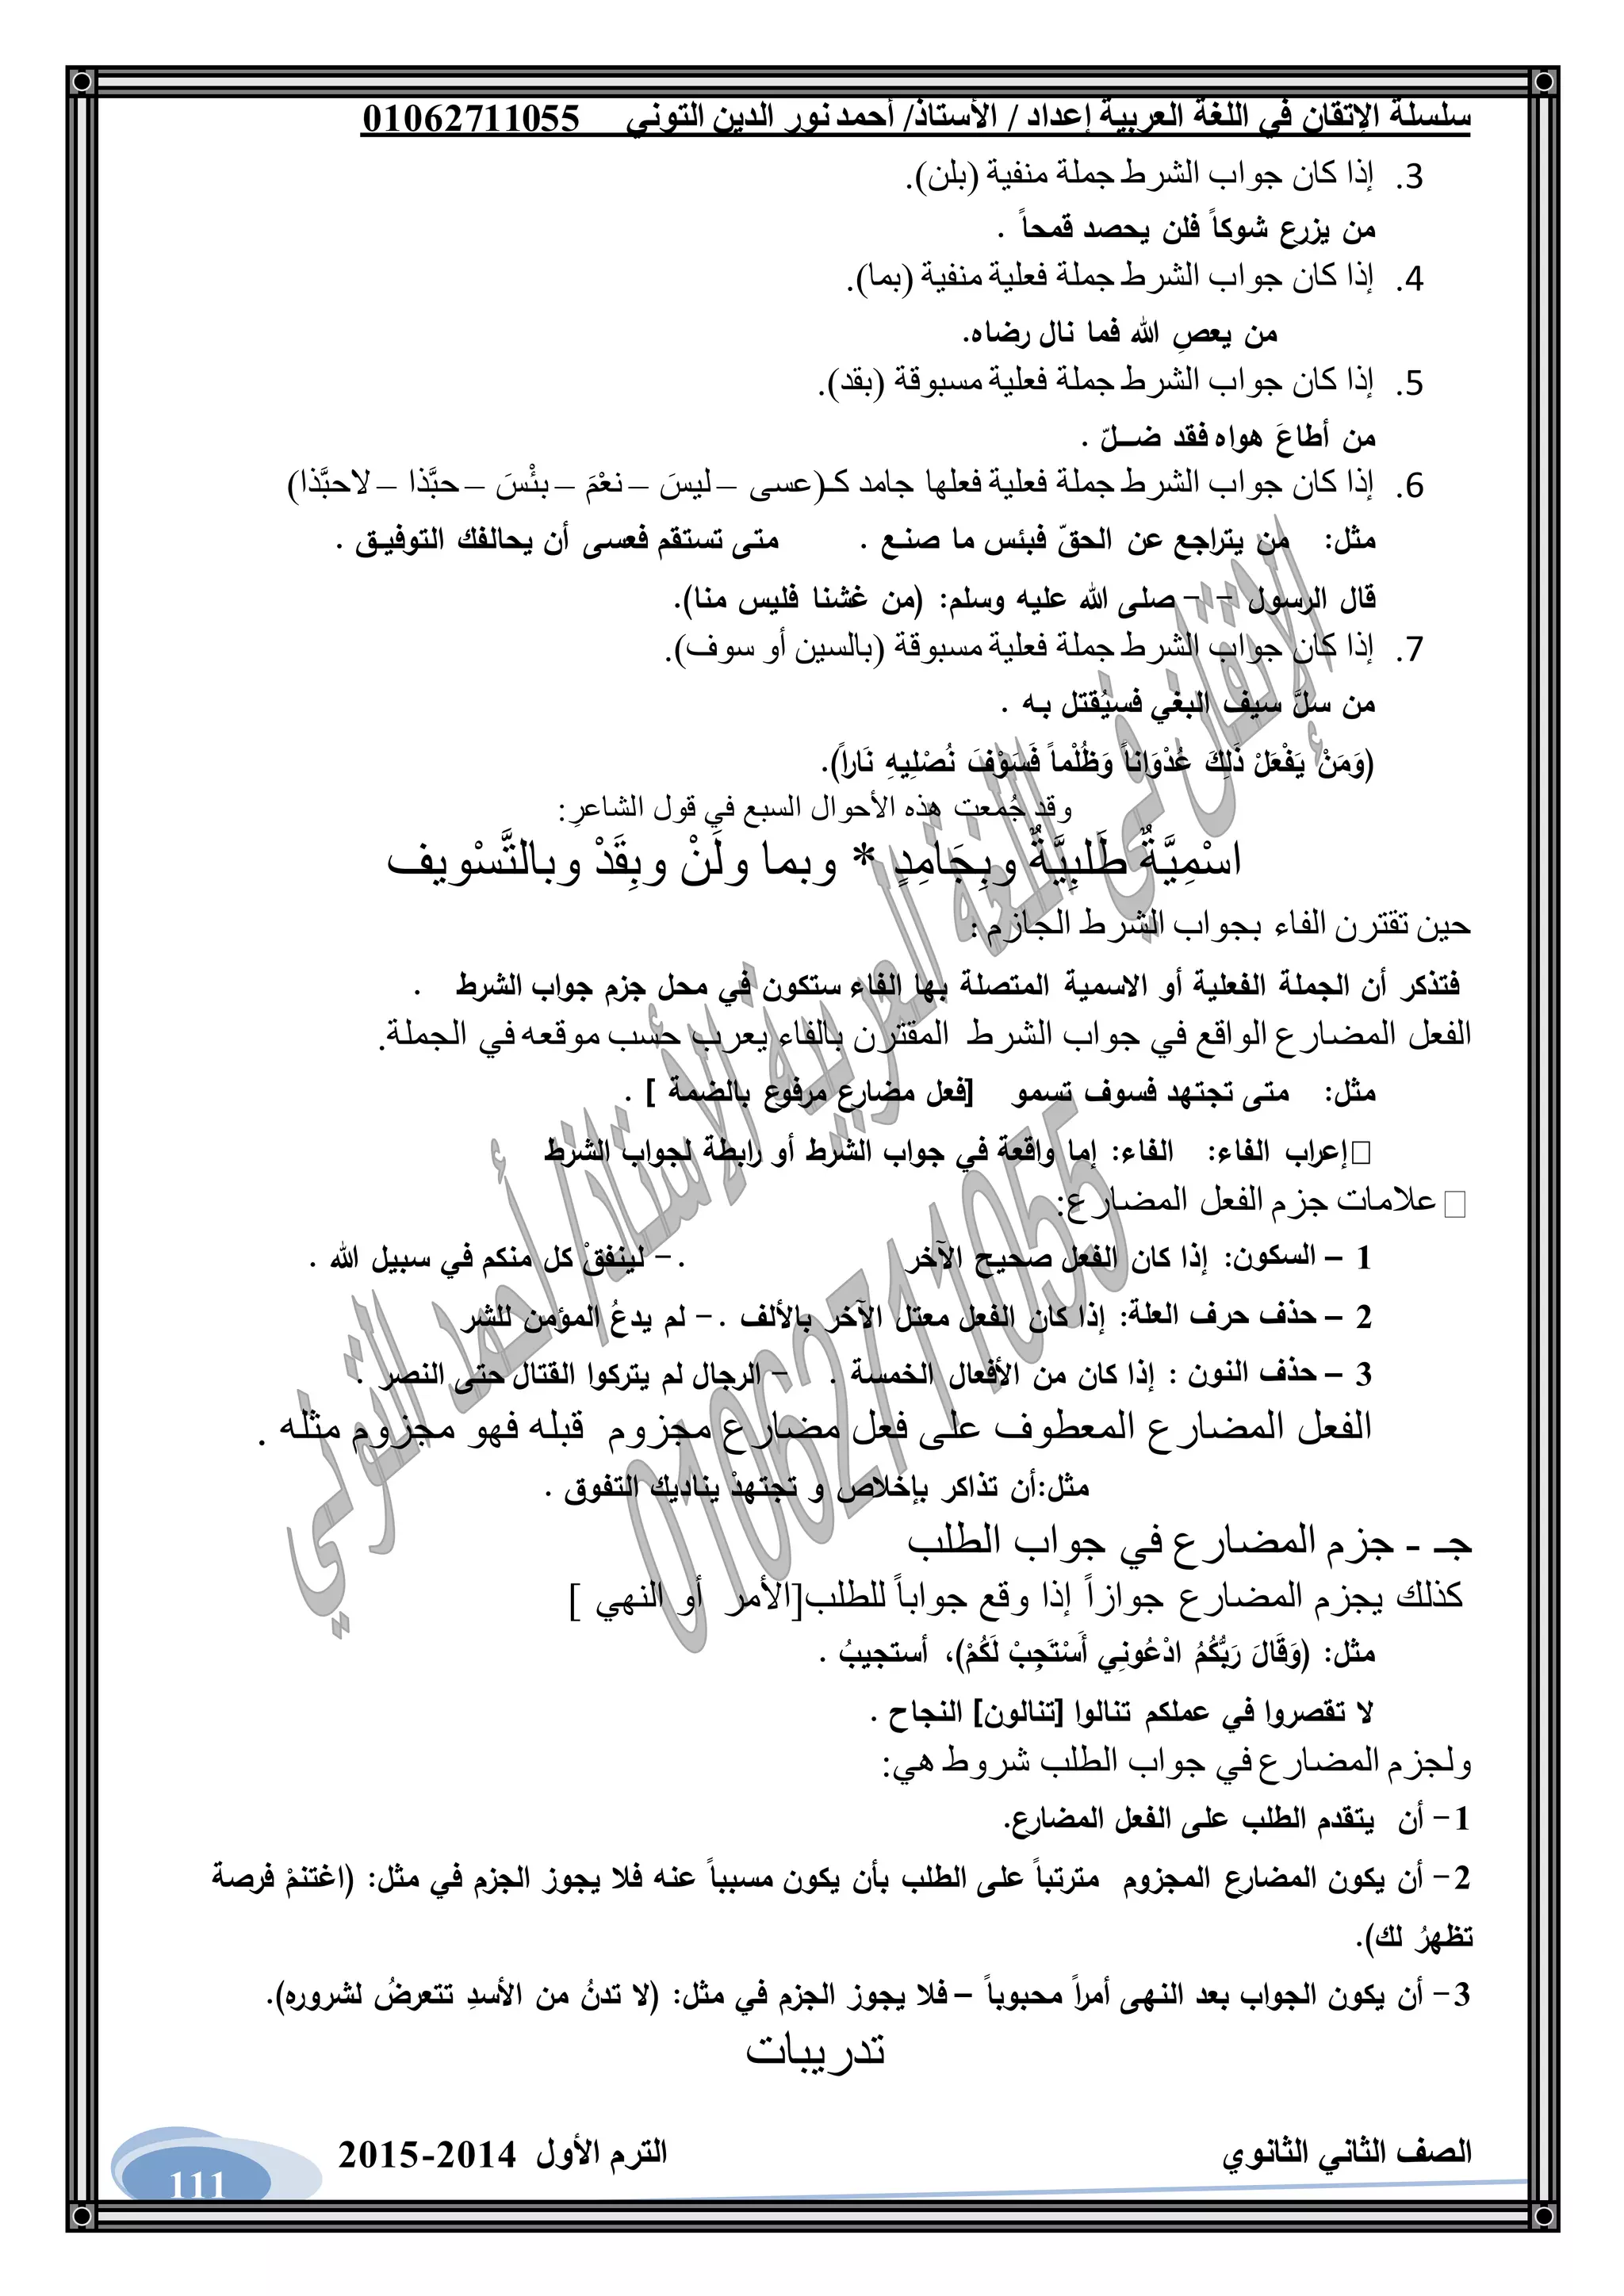 سلسلة الإتقان في اللغة العربية إعداد / الأستاذ/ أحمد نور الدين التوني 01062711055
3. إذا كان جواب الشرط جملة منفية (بلن).
من يزرع شوكاً فلن يحصد قمحاً .
4. إذا كان جواب الشرط جملة فعلية منفية (بما).
من يعصِ الله فما نال رضاه.
5. إذا كان جواب الشرط جملة فعلية مسبوقة (بقد).
من أطاعَ هواه فقد ضـــلّ .
6. إذا كان جواب الشرط جملة فعلية فعلها جامد كـ(عسى – ليسَ – نعْمَ – بئْسَ – حبَّذا – لاحبَّذا)
مثل: من يتراجع عن الحقّ فبئس ما صنـع . متى تستقم فعسى أن يحالفك التوفيـق .
قال الرسول - - صلى الله عليه وسلم: (من غشنا فليس منا).
7. إذا كان جواب الشرط جملة فعلية مسبوقة (بالسين أو سوف).
من سلَّ سيف البغي فسيُقتل بـه .
(وَمَنْ يَفْعَلْ ذَلِكَ عُدْوَاناً وَظُلْماً فَسَوْفَ نُصْلِيهِ نَاراً).
وقد جُمعت هذه الأحوال السبع في قول الشاعرِ:
اسْمِيَّةٌ طَلَبِيَّةٌ وبِجَامِدٍ * وبما ولَنْ وبِقَدْ وبالتَّسْويف
حين تقترن الفاء بجواب الشرط الجازم :
فتذكر أن الجملة الفعلية أو الاسمية المتصلة بها الفاء ستكون في محل جزم جواب الشرط .
الفعل المضارع الواقع في جواب الشرط المقترن بالفاء يعرب حسب موقعه في الجملة.
مثل: متى تجتهد فسوف تسمو [فعل مضارع مرفوع بالضمة ] .
إعراب الفاء: الفاء: إما واقعة في جواب الشرط أو رابطة لجواب الشرط
علامات جزم الفعل المضارع:
1 – السكون: إذا كان الفعل صحيح الآخر .- لينفقْ كل منكم في سبيل الله .
2 – حذف حرف العلة: إذا كان الفعل معتل الآخر بالألف .- لم يدعُ المؤمن للشر
3 – حذف النون : إذا كان من الأفعال الخمسة . - الرجال لم يتركوا القتال حتى النصر .
الفعل المضارع المعطوف على فعل مضارع مجزوم قبله فهو مجزوم مثله .
مثل:أن تذاكر بإخلاص و تجتهدْ يناديك التفوق .
جـ - جزم المضارع في جواب الطلب
كذلك يجزم المضارع جوازاً إذا وقع جواباً للطلب[الأمر أو النهي ]
مثل: (وَقَالَ رَبُّكُمُ ادْعُونِي أَسْتَجِبْ لَكُمْ)، أستجيبُ .
لا تقصروا في عملكم تنالوا [تنالون] النجاح .
ولجزم المضارع في جواب الطلب شروط هي:
1- أن يتقدم الطلب على الفعل المضارع.
2- أن يكون المضارع المجزوم مترتباً على الطلب بأن يكون مسبباً عنه فلا يجوز الجزم في مثل: (اغتنمْ فرصة
تظهرُ لك).
3- أن يكون الجواب بعد النهى أمراً محبوباً – فلا يجوز الجزم في مثل: (لا تدنُ من الأسدِ تتعرضُ لشروره).
تدريبات
الصف الثاني الثانوي الترم الأول 2014-2015
111
الإتقان في اللغة العربية الأستاذ/ أحمد التوني
01062711055